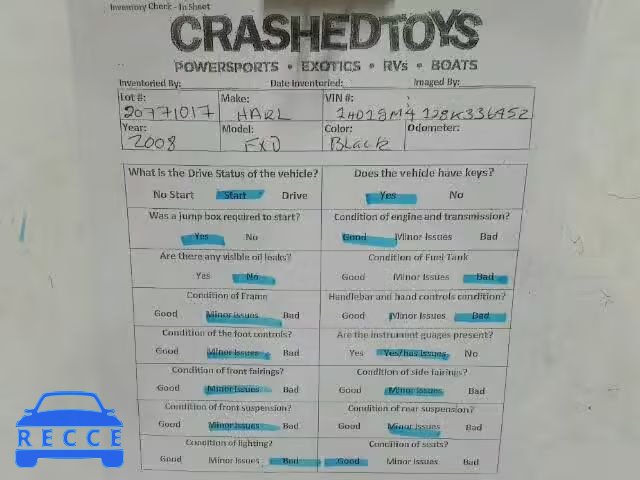 Inventory Check - In Sheet
CRASHEDTOYS
POWERSPORTS • EXOTICS • RVs • BOATS
Inventoried By: Date Inventoried: Imaged By:
Lot #: Make: VIN #:
20771017 HARL 1HD1GM4128K336452
Year: Model: Color: Odometer:
2008 FXD BLack
What is the Drive Status of the vehicle? Does the vehicle have keys?
No Start Start Drive Yes No
Was a jump box required to start? Condition of engine and transmission?
Yes No Good Minor Issues Bad
Are there any visible oil leaks? Condition of Fuel Tank
Yes No Good Minor Issues Bad
Condition of Frame Handlebar and hand controls condition?
Good Minor Issues Bad Good Minor Issues Bad
Condition of the foot controls? Are the instrument guages present?
Good Minor Issues Bad Yes Yes/has Issues No
Condition of front fairings? Condition of side fairings?
Good Minor Issues Bad Good Minor Issues Bad
Condition of front suspension? Condition of rear suspension?
Good Minor Issues Bad Good Minor Issues Bad
Condition of lighting? Condition of seats?
Good Minor Issues Bad Good Minor Issues Bad
RECCE